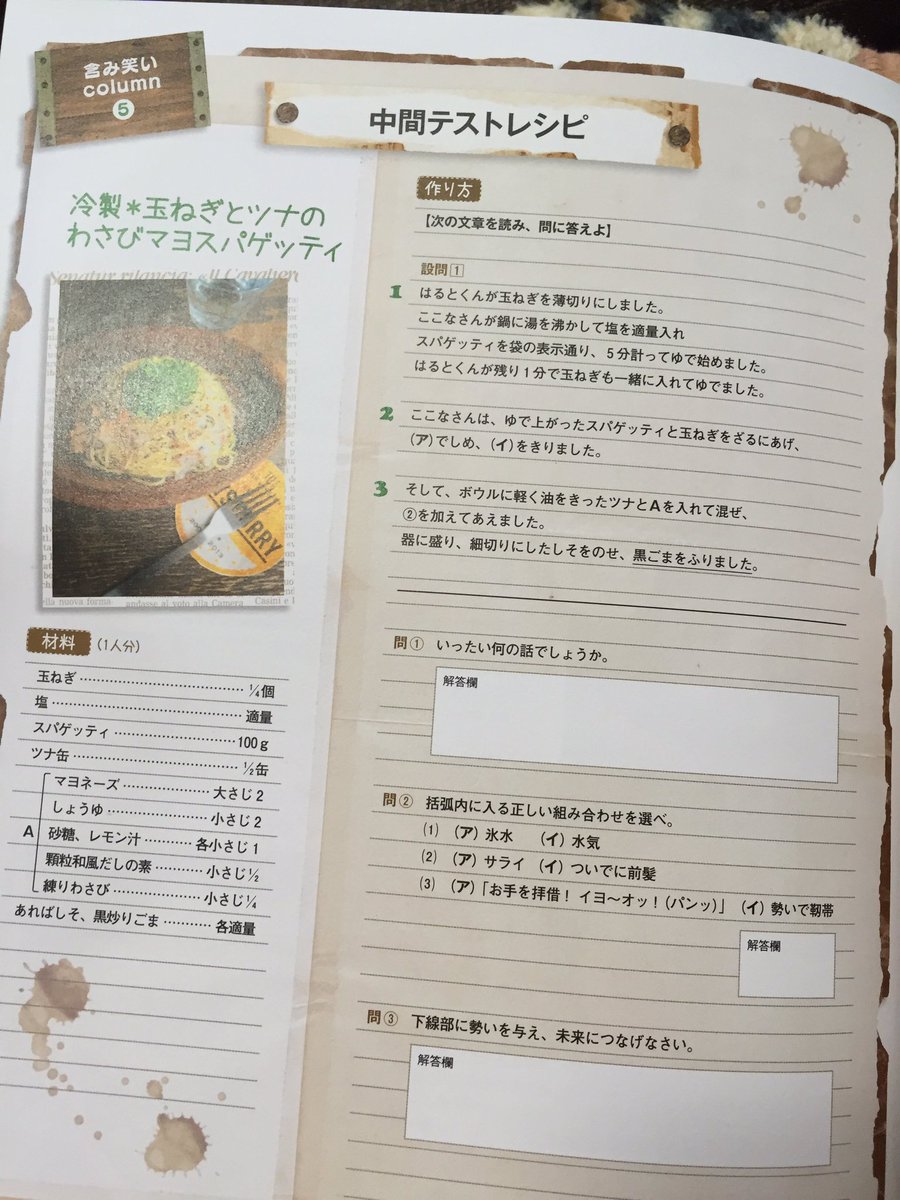 含み笑い
column
5
中間テストレシピ
冷製*玉ねぎとツナの
わさびマヨスパゲッティ
Senatur rilancia: «Il Cavaliere
SCURRY
ella nuova forma-
andasse al voto alla Camera
Casini e l
材料 (1人分)
玉ねぎ……………………………… ¼個
塩……………………………… 適量
スパゲッティ……………………… 100g
ツナ缶……………………………… ½缶
A
マヨネーズ……………… 大さじ2
しょうゆ……………… 小さじ2
砂糖、レモン汁………… 各小さじ1
顆粒和風だしの素………… 小さじ½
練りわさび……………… 小さじ¼
あればしそ、黒炒りごま………… 各適量
作り方
【次の文章を読み、問に答えよ】
設問1
1 はるとくんが玉ねぎを薄切りにしました。
ここなさんが鍋に湯を沸かして塩を適量入れ
スパゲッティを袋の表示通り、5分計ってゆで始めました。
はるとくんが残り1分で玉ねぎも一緒に入れてゆでました。
2 ここなさんは、ゆで上がったスパゲッティと玉ねぎをざるにあげ、
(ア)でしめ、(イ)をきりました。
3 そして、ボウルに軽く油をきったツナとAを入れて混ぜ、
②を加えてあえました。
器に盛り、細切りにしたしそをのせ、黒ごまをふりました。
問① いったい何の話でしょうか。
解答欄
問② 括弧内に入る正しい組み合わせを選べ。
(1) (ア)氷水 (イ)水気
(2) (ア)サライ (イ)ついでに前髪
(3) (ア)「お手を拝借! イヨ~オッ!(パンッ)」 (イ)勢いで靭帯
解答欄
問③ 下線部に勢いを与え、未来につなげなさい。
解答欄